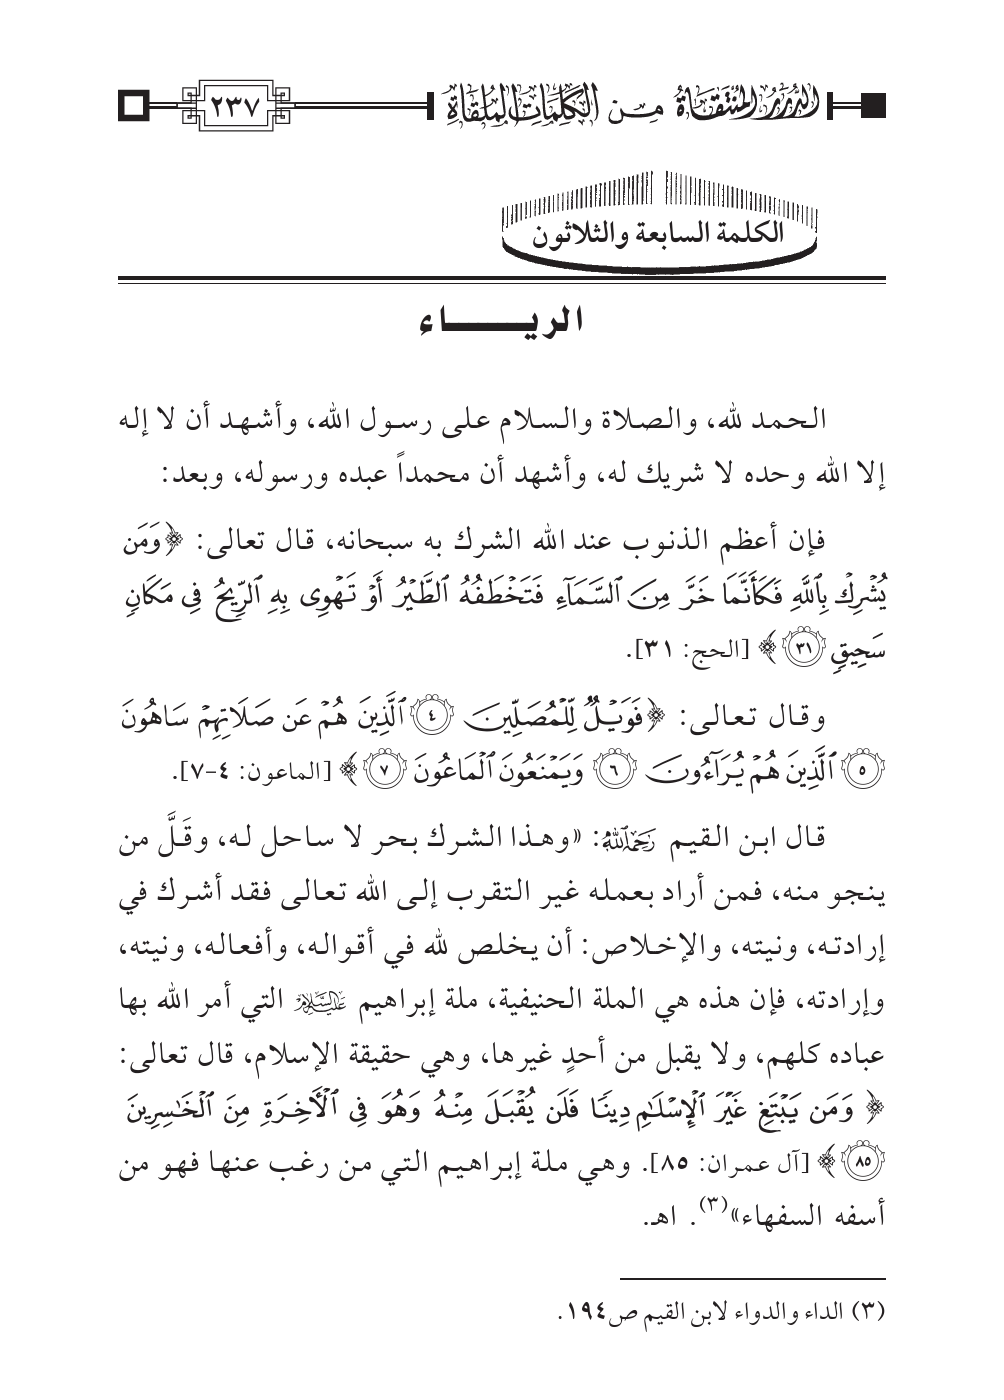 الدرر المنتقاة من الكلمات الملقاة ٢٣٧
الكلمة السابعة والثلاثون
الريـــــاء
الحمد لله، والصلاة والسلام على رسول الله، وأشهد أن لا إله
إلا الله وحده لا شريك له، وأشهد أن محمداً عبده ورسوله، وبعد:
فإن أعظم الذنوب عند الله الشرك به سبحانه، قال تعالى: ﴿وَمَن
يُشْرِكْ بِٱللَّهِ فَكَأَنَّمَا خَرَّ مِنَ ٱلسَّمَآءِ فَتَخْطَفُهُ ٱلطَّيْرُ أَوْ تَهْوِى بِهِ ٱلرِّيحُ فِى مَكَانٍ
سَحِيقٍ ٣١﴾ [الحج: ٣١].
وقال تعالى: ﴿فَوَيْلٌ لِّلْمُصَلِّينَ ٤ ٱلَّذِينَ هُمْ عَن صَلَاتِهِمْ سَاهُونَ
٥ ٱلَّذِينَ هُمْ يُرَآءُونَ ٦ وَيَمْنَعُونَ ٱلْمَاعُونَ ٧﴾ [الماعون: ٤-٧].
قال ابن القيم رحمه الله: «وهذا الشرك بحر لا ساحل له، وقَلَّ من
ينجو منه، فمن أراد بعمله غير التقرب إلى الله تعالى فقد أشرك في
إرادته، ونيته، والإخلاص: أن يخلص لله في أقواله، وأفعاله، ونيته،
وإرادته، فإن هذه هي الملة الحنيفية، ملة إبراهيم عليه السلام التي أمر الله بها
عباده كلهم، ولا يقبل من أحدٍ غيرها، وهي حقيقة الإسلام، قال تعالى:
﴿وَمَن يَبْتَغِ غَيْرَ ٱلْإِسْلَٰمِ دِينًا فَلَن يُقْبَلَ مِنْهُ وَهُوَ فِى ٱلْأَخِرَةِ مِنَ ٱلْخَٰسِرِينَ
٨٥﴾ [آل عمران: ٨٥]. وهي ملة إبراهيم التي من رغب عنها فهو من
أسفه السفهاء»(٣). اهـ.
(٣) الداء والدواء لابن القيم ص١٩٤.